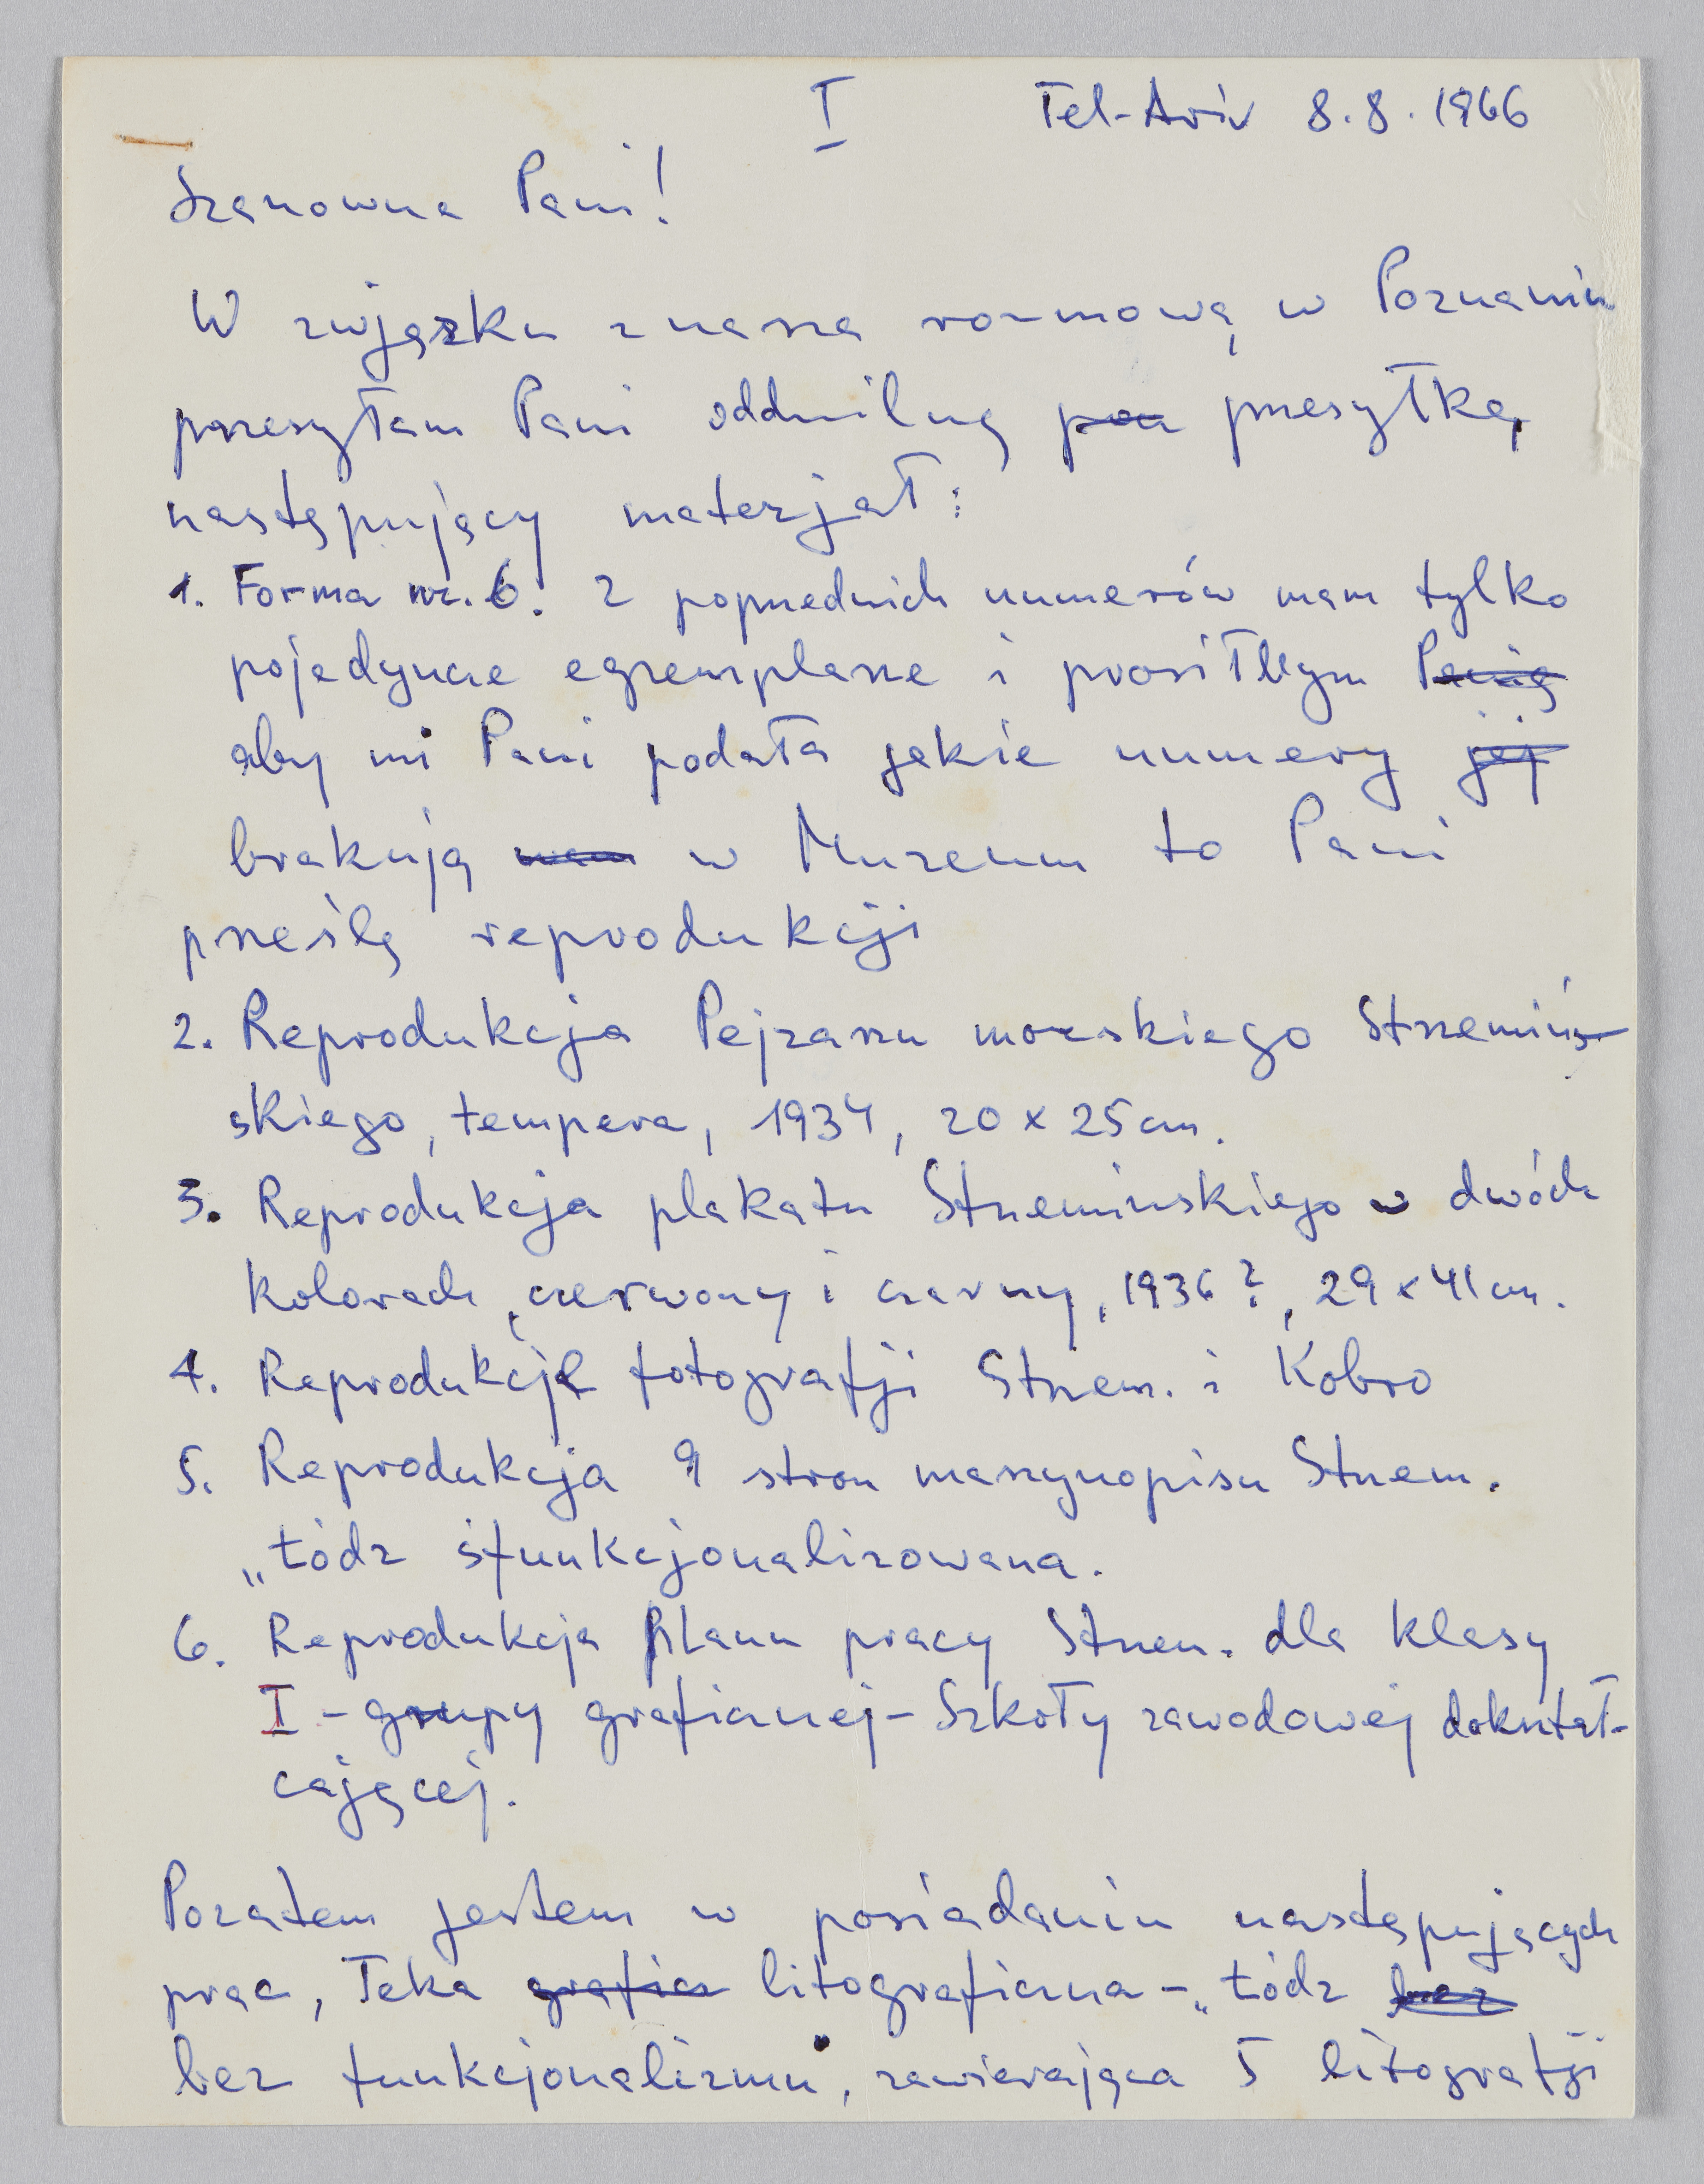 I Tel-Aviv 8.8.1966
Szanowna Pani!
W zwjązku z nasza rozmową w Poznaniu
przesyłam Pani oddzilną przesyłką
następujący materjał:
1. Forma nr. 6. z poprzednich numerów mam tylko
pojedyncze egzemplarze i prosiłbym Panią
aby mi Pani podała jakie numery jej
brakują nam w Muzeum to Pani
prześlę reprodukcji
2. Reprodukcja Pejzarzu morskiego Strzemiń-
skiego, tempera, 1934, 20 x 25 cm.
3. Reprodukcja plakatu Strzeminskiego w dwóch
kolorach, czerwony i czarny, 1936?, 29 x 41 cm.
4. Reprodukcję fotografji Strzem. i Kobro
5. Reprodukcja 9 stron maszynopisu Strzem.
„Łódz sfunkcjonalizowana.
6. Reprodukcja Planu pracy Strzem. dla klasy
I - grupy graficznej - Szkoły zawodowej dokształ-
cającej.
Pozatem jestem w posiadaniu następujących
prac, Teka graficz litograficzna - „Łódz bez
bez funkcjonalizmu", zawierająca 5 litografji